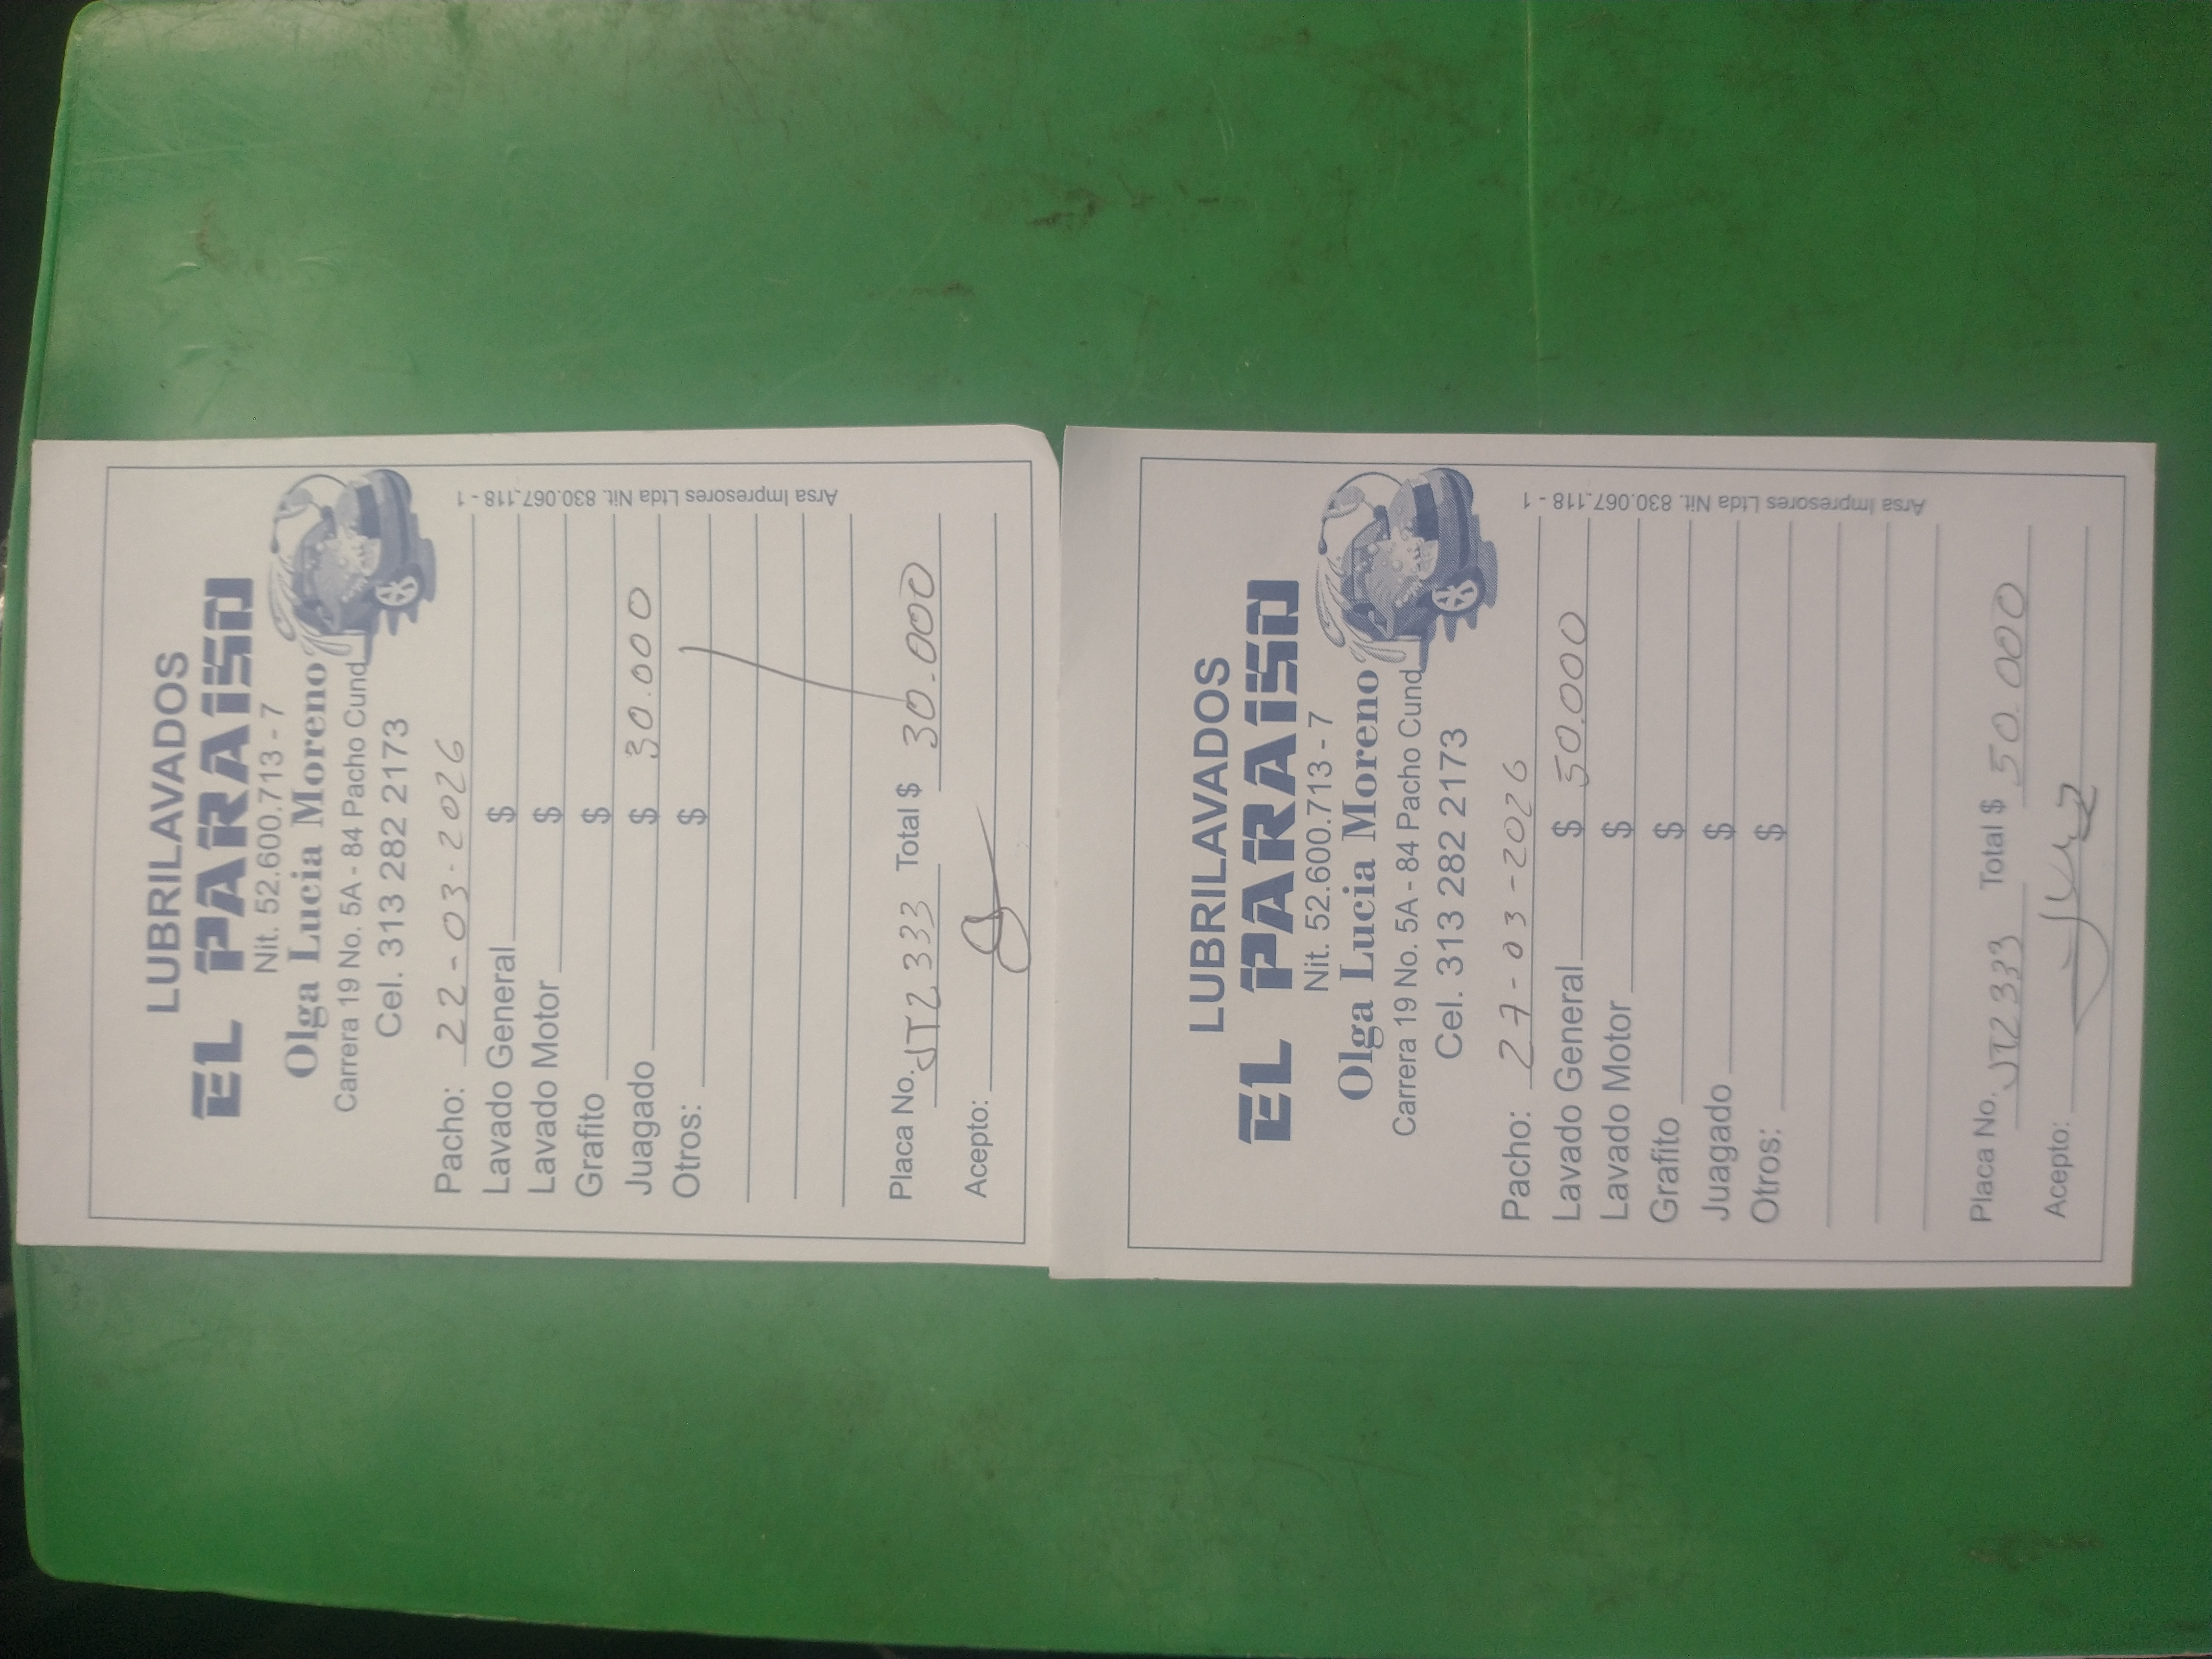 LUBRILAVADOS
EL PARAISO
Nit. 52.600.713 - 7
Olga Lucia Moreno
Carrera 19 No. 5A - 84 Pacho Cund
Cel. 313 282 2173
Pacho: 22-03-2026
Lavado General $
Lavado Motor $
Grafito $
Juagado $ 30.000
Otros: $
Placa No. JTZ333 Total $ 30.000
Acepto:
Arsa Impresores Ltda Nit. 830.067.118 - 1
LUBRILAVADOS
EL PARAISO
Nit. 52.600.713 - 7
Olga Lucia Moreno
Carrera 19 No. 5A - 84 Pacho Cund
Cel. 313 282 2173
Pacho: 27-03-2026
Lavado General $ 50.000
Lavado Motor $
Grafito $
Juagado $
Otros: $
Placa No. JTZ333 Total $ 50.000
Acepto:
Arsa Impresores Ltda Nit. 830.067.118 - 1